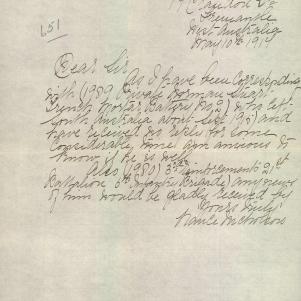 151
Fremantle
West Australia
May 10th 191
Dear Sir
As I have been Corresponding
with (1989 Private Norman Stuart
Trench Mortar Battery No 2) who left
South Australia about Sept 1915) and
have received no letter for some
Considerable time am anxious to
know if he is well
Also (1980) 3rd Reinforcements 21st
Battalion 6th Infantry Brigade) any news
of him would be gladly received by
Yours truly
Nicholson